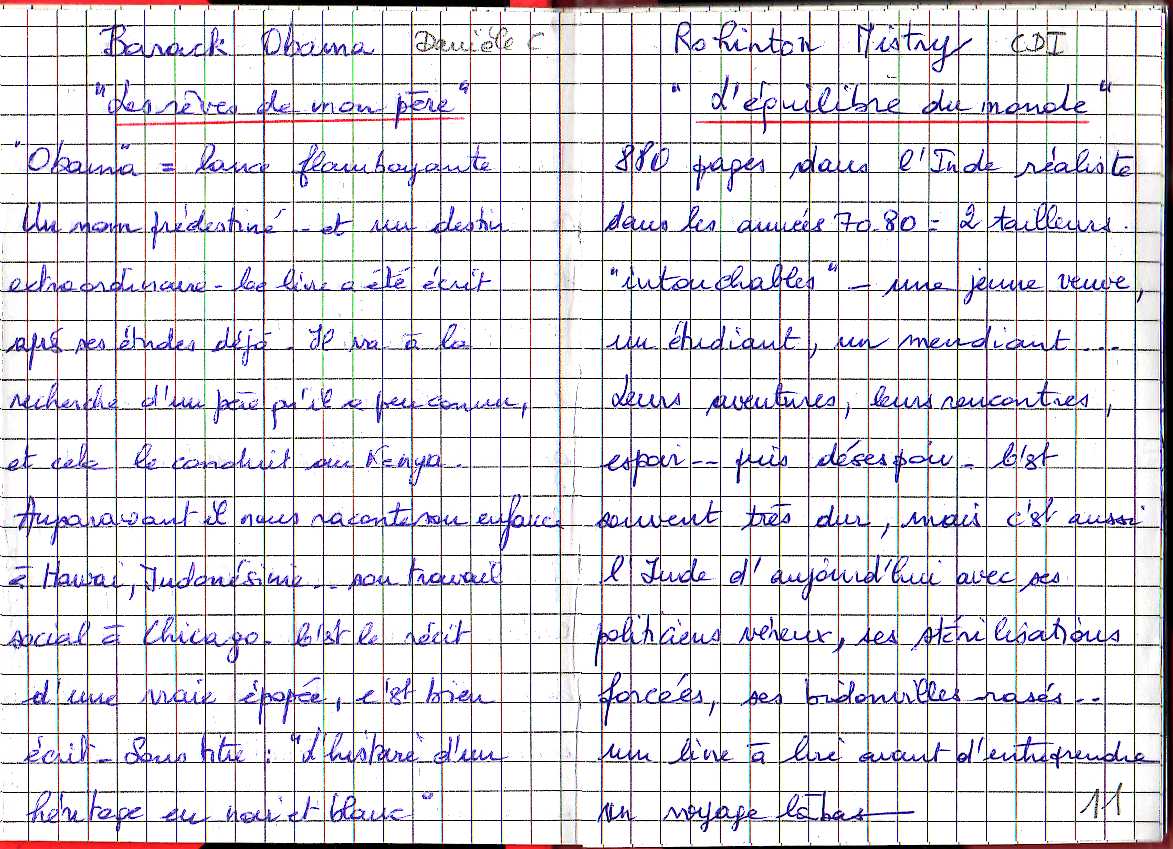 Barack Obama Danièle C
"Les rêves de mon père"
"Obama" = lance flamboyante
Un nom prédestiné -- et un destin
extraordinaire - Ce livre a été écrit
après ses études déjà - Il va à la
recherche d'un père qu'il a peu connu,
et cela le conduit au Kenya.
Auparavant il nous raconte son enfance
à Hawai, Indonésinie -- son travail
social à Chicago - C'est le récit
d'une vraie épopée, c'est bien
écrit - Sous titre : "L'histoire d'un
héritage en noir et blanc"
Rohinton Mistry CDI
"L'équilibre du monde"
880 pages dans l'Inde réaliste
dans les années 70-80 = 2 tailleurs
"intouchables" - une jeune veuve,
un étudiant, un mendiant ---
Leurs aventures, leurs rencontres,
espoir -- puis désespoir - C'est
souvent très dur, mais c'est aussi
l'Inde d'aujourd'hui avec ses
politiciens véreux, ses stérilisations
forcées, ses bidonvilles rasés --
un livre à lire avant d'entreprendre
un voyage là bas —
11